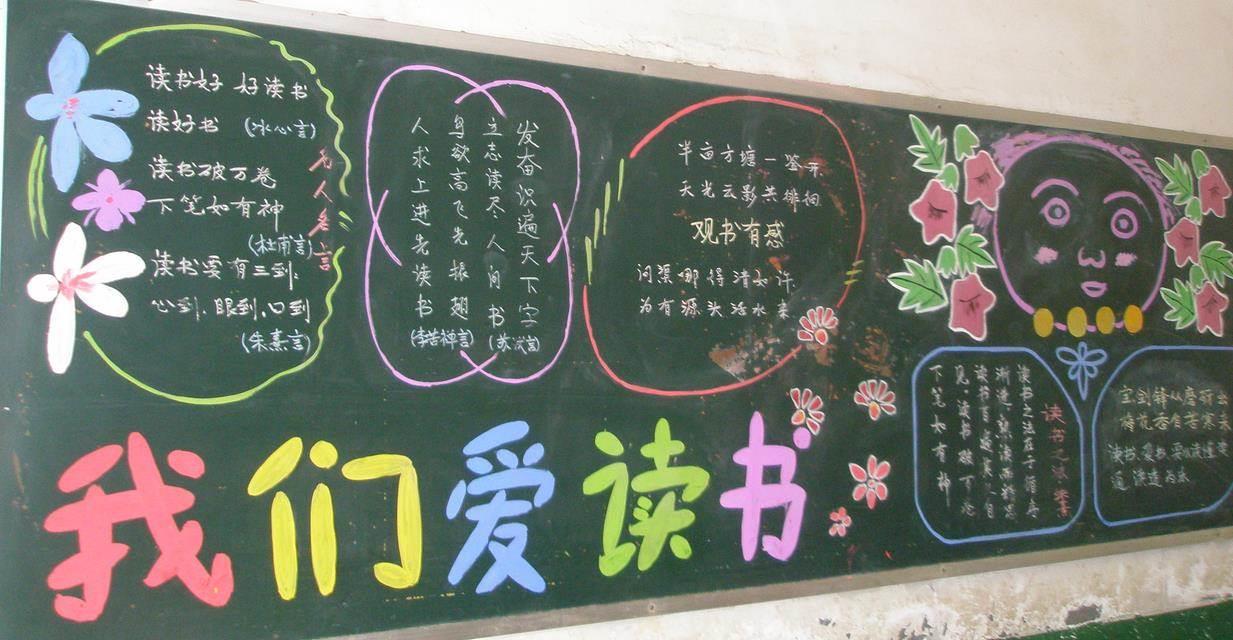 名人名言
读书好 好读书
读好书 (冰心言)
读书破万卷
下笔如有神
(杜甫言)
读书要有三到:
心到,眼到,口到
(朱熹言)
发奋识遍天下字
(苏轼言)
立志读尽人间书
鸟欲高飞先振翅
(李苦禅言)
人求上进先读书
半亩方塘一鉴开
天光云影共徘徊
观书有感
问渠哪得清如许
为有源头活水来
读书之法 朱熹
读书之法在于循序
渐进,熟读而精思
读书百遍其义自
见,读书破万卷
下笔如有神
宝剑锋从磨砺出
梅花香自苦寒来
读书、爱书、要
我们爱读书